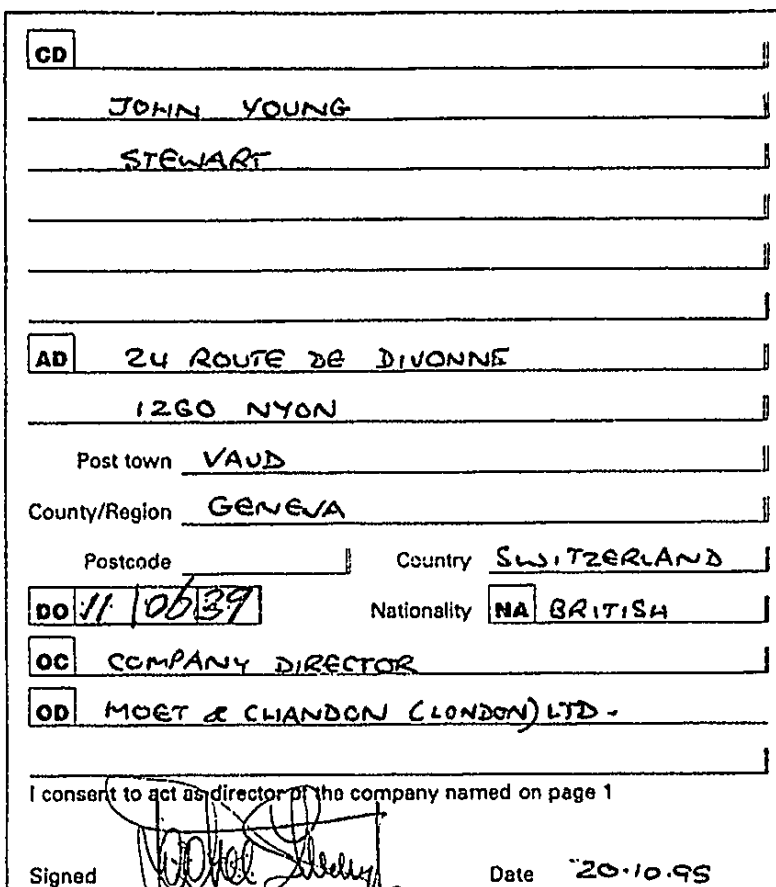 CD
JOHN YOUNG
STEWART
AD 24 ROUTE DE DIVONNE
1260 NYON
Post town VAUD
County/Region GENEVA
Postcode Country SWITZERLAND
DO 11 06 39 Nationality NA BRITISH
OC COMPANY DIRECTOR
OD MOET & CHANDON (LONDON) LTD.
I consent to act as director of the company named on page 1
Signed Date 20.10.95